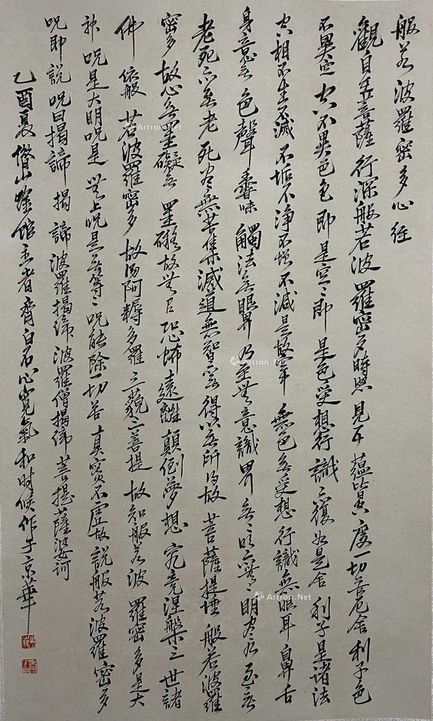 般若波羅密多心經
觀自在菩薩行深般若波羅密多時照見五蘊皆是度一切苦厄舍利子色
不異空空不異色色即是空〻即是色受想行識亦復如是舍利子是諸法
空相不生不滅不垢不淨不增不減是故空中無色無受想行識無眼耳鼻舌
身意無色聲香味觸法無眼界乃至無意識界無無明亦無無明盡乃至無
老死亦無老死盡無苦集滅道無智亦無得以無所得故菩薩提埵般若波羅
密多故心無罣礙無罣礙故無有恐怖遠離顛倒夢想究竟涅槃三世諸
佛依般若波羅密多故得阿耨多羅三藐三菩提故知般若波羅密多是大
神咒是大明咒是無上咒是無等〻咒能除一切苦真實不虛故說般若波羅密多
咒即說咒曰揭諦揭諦波羅揭諦波羅僧揭諦菩提薩婆訶
乙酉夏借山唫館主者齊白石心寬氣和時候作于京華
Artron.Net
Artron.Net
Artron.Net